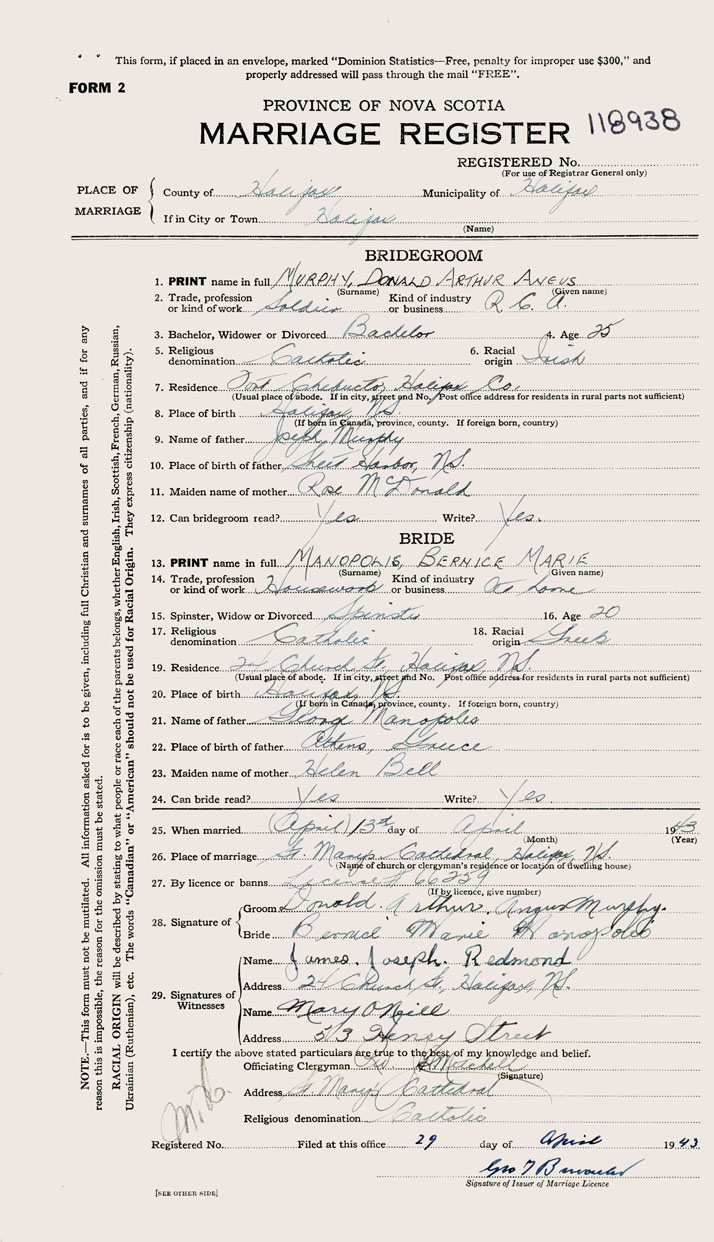 This form, if placed in an envelope, marked "Dominion Statistics—Free, penalty for improper use $300," and
properly addressed will pass through the mail "FREE".
FORM 2
PROVINCE OF NOVA SCOTIA
MARRIAGE REGISTER 118938
REGISTERED No.
(For use of Registrar General only)
PLACE OF MARRIAGE
County of Halifax Municipality of Halifax
If in City or Town Halifax
(Name)
BRIDEGROOM
1. PRINT name in full MURPHY, DONALD ARTHUR ANGUS
(Surname) (Given name)
2. Trade, profession or kind of work Soldier Kind of industry or business R. C. A.
3. Bachelor, Widower or Divorced Bachelor 4. Age 25
5. Religious denomination Catholic 6. Racial origin Irish
7. Residence Halifax Co.
(Usual place of abode. If in city, street and No. Post office address for residents in rural parts not sufficient)
8. Place of birth Halifax, N.S.
(If born in Canada, province, county. If foreign born, country)
9. Name of father Joseph Murphy
10. Place of birth of father Sheet Harbor, N.S.
11. Maiden name of mother Rose McDonald
12. Can bridegroom read? Yes Write? Yes.
BRIDE
13. PRINT name in full MANOPOLIS, BERNICE MARIE
(Surname) (Given name)
14. Trade, profession or kind of work Housework Kind of industry or business At home
15. Spinster, Widow or Divorced Spinster 16. Age 20
17. Religious denomination Catholic 18. Racial origin Greek
19. Residence 24 Church St., Halifax, N.S.
(Usual place of abode. If in city, street and No. Post office address for residents in rural parts not sufficient)
20. Place of birth Halifax, N.S.
(If born in Canada, province, county. If foreign born, country)
21. Name of father George Manopolis
22. Place of birth of father Athens, Greece
23. Maiden name of mother Helen Bell
24. Can bride read? Yes Write? Yes.
25. When married (April) 13th day of April 1943
(Month) (Year)
26. Place of marriage St. Marys Cathedral, Halifax, N.S.
(Name of church or clergyman's residence or location of dwelling house)
27. By licence or banns License # 66259
(If by licence, give number)
28. Signature of
Groom Donald. Arthur. Angus Murphy.
Bride Bernice Marie Manopolis
29. Signatures of Witnesses
Name James. Joseph. Redmond
Address 24 Church St., Halifax, N.S.
Name Mary O'Neill
Address 5/3 Henry Street
I certify the above stated particulars are true to the best of my knowledge and belief.
Officiating Clergyman Mitchell
(Signature)
Address St Marys Cathedral
Religious denomination Catholic
Registered No. Filed at this office 29 day of April 1943
Signature of Issuer of Marriage Licence
[SEE OTHER SIDE]
NOTE.—This form must not be mutilated. All information asked for is to be given, including full Christian and surnames of all parties, and if for any
reason this is impossible, the reason for the omission must be stated.
RACIAL ORIGIN will be described by stating to what people or race each of the parents belongs, whether English, Irish, Scottish, French, German, Russian,
Ukrainian (Ruthenian), etc. The words "Canadian" or "American" should not be used for Racial Origin. They express citizenship (nationality).